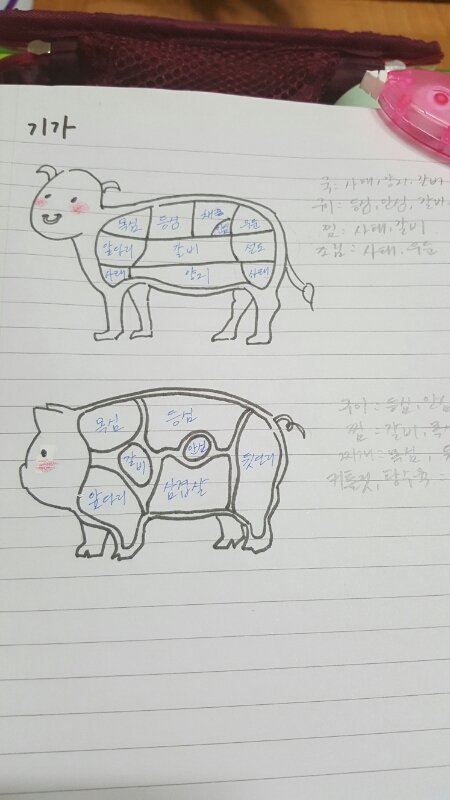 기가
목심 등심 채끝 우둔
안심
앞다리 갈비 설도
사태 양지 사태
국: 사태, 양지, 갈비
구이: 등심, 안심, 갈비
찜: 사태, 갈비
조림: 사태, 우둔
목심 등심
안심
갈비 뒷다리
앞다리 삼겹살
구이: 등심, 안심
찜: 갈비,
찌개: 목심,
커틀릿, 탕수육